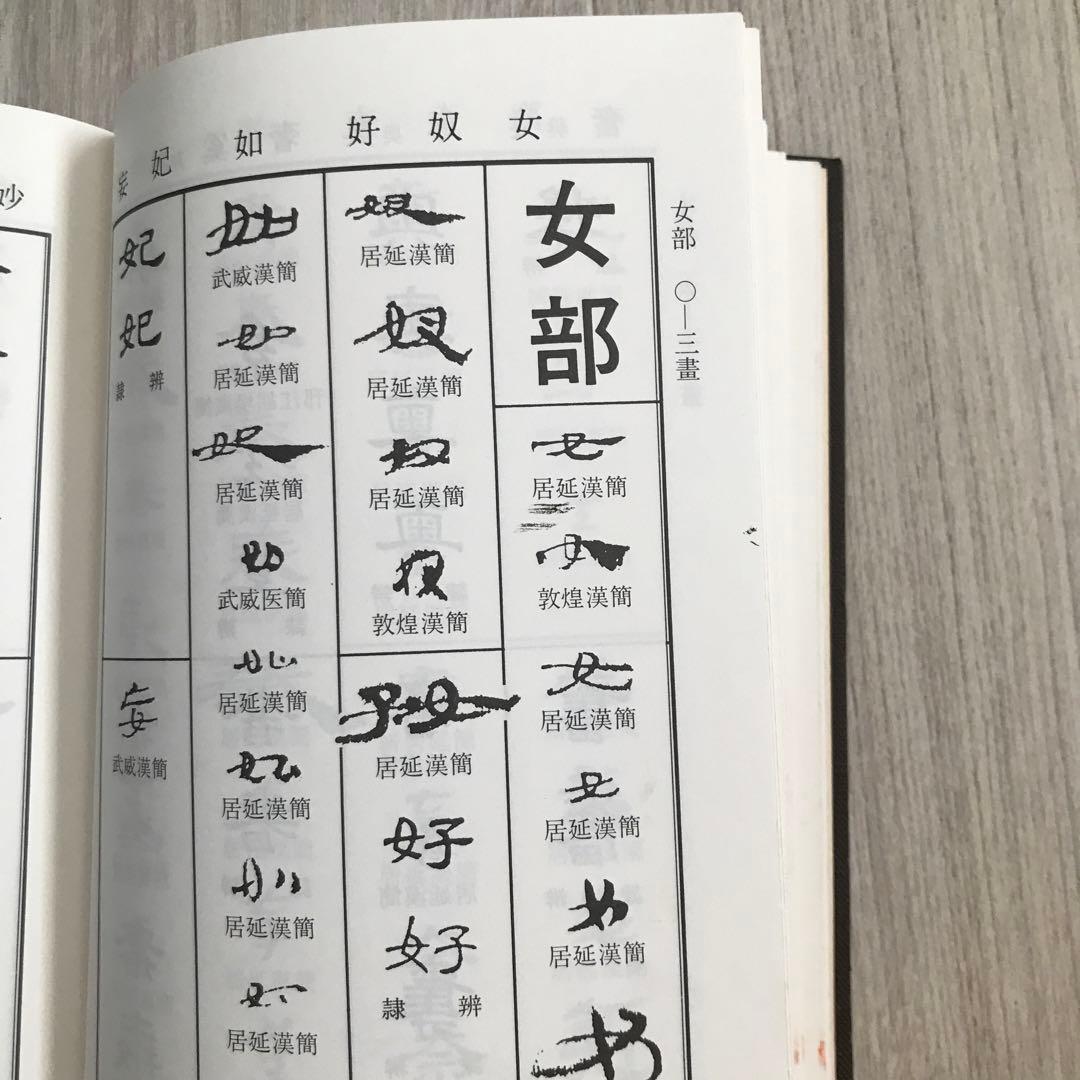 女 奴 好 如 妃 妄
女部 〇―三畫
女部
女
居延漢簡
女
敦煌漢簡
女
居延漢簡
女
居延漢簡
女
居延漢簡
奴
居延漢簡
奴
居延漢簡
奴
居延漢簡
奴
敦煌漢簡
好
居延漢簡
好
好
隸辨
如
武威漢簡
如
居延漢簡
如
居延漢簡
如
武威医簡
如
居延漢簡
如
居延漢簡
如
居延漢簡
如
居延漢簡
妃
妃
隸辨
妄
武威漢簡
妙